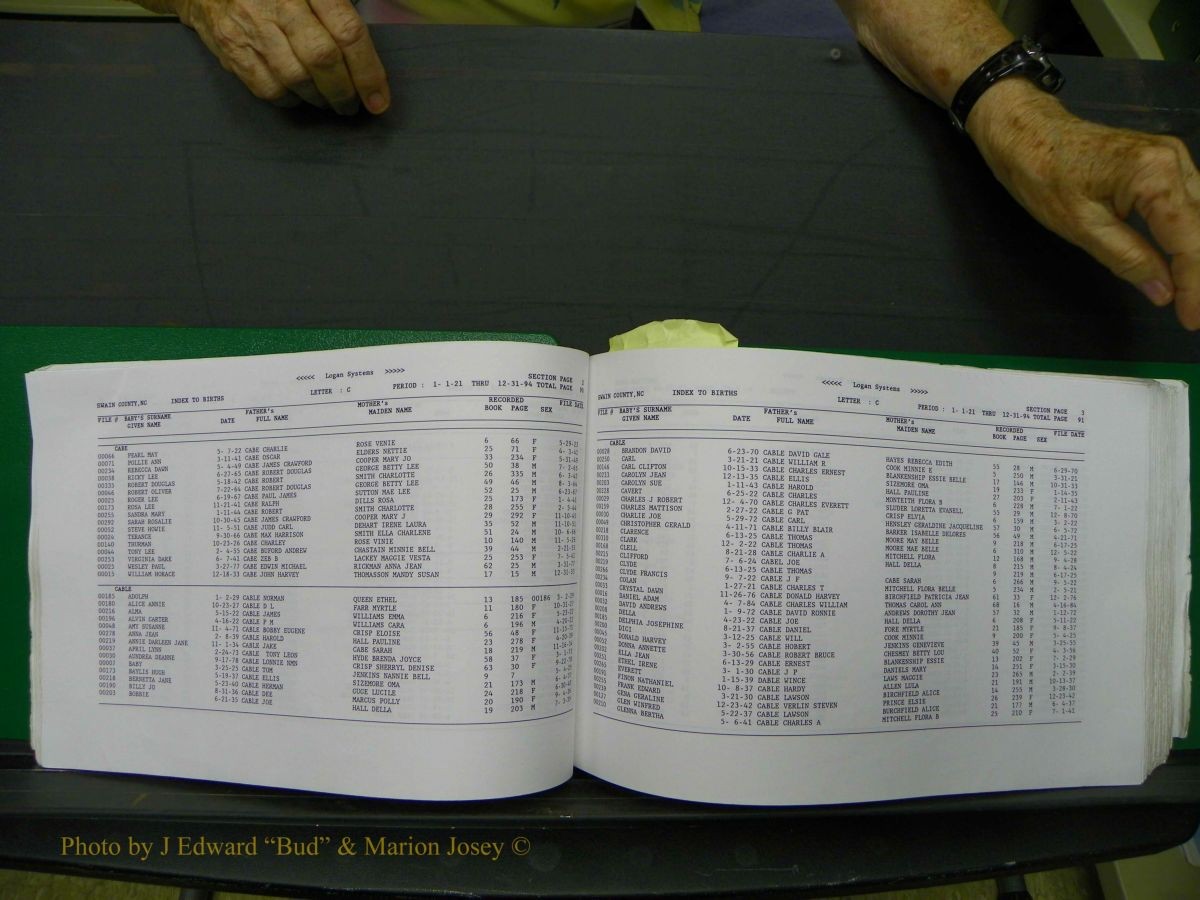 <<<<< Logan Systems >>>>>
SWAIN COUNTY,NC INDEX TO BIRTHS LETTER : C PERIOD : 1- 1-21 THRU 12-31-94 SECTION PAGE TOTAL PAGE
FILE # BABY'S SURNAME GIVEN NAME DATE FATHER's FULL NAME MOTHER's MAIDEN NAME RECORDED BOOK PAGE SEX FILE DATE
CABE
00066 PEARL MAY 5- 7-22 CABE CHARLIE ROSE VENIE 6 66 F 5-29-23
00071 POLLIE ANN 3-11-41 CABE OSCAR ELDERS NETTIE 25 71 F
00234 REBECCA DAWN 5- 4-49 CABE JAMES CRAWFORD COOPER MARY JO 33 234 F
00038 RICKY LEE 6-27-65 CABE ROBERT DOUGLAS GEORGE BETTY LEE 50 38 M
00335 ROBERT DOUGLAS 5-18-42 CABE ROBERT SMITH CHARLOTTE 26 335 M
00046 ROBERT OLIVER 7-22-64 CABE ROBERT DOUGLAS GEORGE BETTY LEE 49 46 M
00025 ROGER LEE 6-19-67 CABE PAUL JAMES SUTTON MAE LEE 52 25 M
00173 ROSA LEE 11-21-41 CABE RALPH DILLS ROSA 25 173 F
00255 SANDRA MARY 1-11-44 CABE ROBERT SMITH CHARLOTTE 28 255 F
00292 SARAH ROSALIE 10-30-45 CABE JAMES CRAWFORD COOPER MARY J 29 292 F
00052 STEVE HOWIE 11- 5-51 CABE JUDD CARL DEHART IRENE LAURA 35 52 M
00024 TERANCE 9-30-66 CABE MAX HARRISON SMITH ELLA CHARLENE 51 24 M
00140 THURMAN 10-23-26 CABE CHARLEY ROSE VINIE 10 140 M
00044 TONY LEE 2- 4-55 CABE BUFORD ANDREW CHASTAIN MINNIE BELL 39 44 M
00253 VIRGINIA DARK 6- 7-41 CABE ZEB B LACKEY MAGGIE VESTA 25 253 F
00025 WESLEY PAUL 3-27-77 CABE EDWIN MICHAEL RICKMAN ANNA JEAN 62 25 M
00015 WILLIAM HORACE 12-18-33 CABE JOHN HARVEY THOMASSON MANDY SUSAN 17 15 M
CABLE
00185 ADOLPH 1- 2-29 CABLE NORMAN QUEEN ETHEL 13 185
00180 ALICE ANNIE 10-23-27 CABLE D L FARR MYRTLE 11 180 F
00216 ALMA 5-15-22 CABLE JAMES WILLIAMS EMMA 6 216 F
00196 ALVIN CARTER 4-16-22 CABLE F M WILLIAMS CARA 6 196 M
00048 AMY SUSANNE 11- 4-71 CABLE BOBBY EUGENE CRISP ELOISE 56 48 F
00278 ANNA JEAN 2- 8-39 CABLE HAROLD HALL PAULINE 23 278 F
00219 ANNIE DARLEEN JANE 11- 1-34 CABLE JAKE CABE SARAH 18 219 M
00037 APRIL LYNN 2-24-73 CABLE TONY LEON HYDE BRENDA JOYCE 58 37
00030 AUNDREA DEANNE 9-17-78 CABLE LONNIE NMN CRISP SHERRYL DENISE 63 30 F
00007 BABY 3-25-25 CABLE TOM JENKINS NANNIE BELL 9 7
00173 BAYLIS HUGH 5-19-37 CABLE ELLIS SIZEMORE OMA 21 173 M
00218 BERNETTA JANE 5-23-40 CABLE HERMAN GUGE LUCILE 24 218 F
00190 BILLY JO 8-31-36 CABLE DEE MARCUS POLLY 20 190 F
00203 BOBBIE 6-21-35 CABLE JOE HALL DELLA 19 203 M
<<<<< Logan Systems >>>>>
SWAIN COUNTY,NC INDEX TO BIRTHS LETTER : C PERIOD : 1- 1-21 THRU 12-31-94 SECTION PAGE 3 TOTAL PAGE 91
FILE # BABY'S SURNAME GIVEN NAME DATE FATHER's FULL NAME MOTHER's MAIDEN NAME RECORDED BOOK PAGE SEX FILE DATE
CABLE
00028 BRANDON DAVID 6-23-70 CABLE DAVID GALE HAYES REBECCA EDITH 55 28 M 6-29-70
00250 CARL 3-21-21 CABLE WILLIAM R COOK MINNIE E 5 250 M 3-31-21
00146 CARL CLIFTON 10-15-33 CABLE CHARLES ERNEST BLANKENSHIP ESSIE BELLE 17 146 M 10-31-33
00233 CAROLYN JEAN 12-13-35 CABLE ELLIS SIZEMORE OMA 19 233 F 1-14-35
00203 CAROLYN SUE 1-11-43 CABLE HAROLD HALL PAULINE 27 203 F 2-11-43
00228 CAVERT 6-25-22 CABLE CHARLES MONTEITH FLORA B 6 228 M 7- 1-22
00029 CHARLES J ROBERT 12- 4-70 CABLE CHARLES EVERETT SLUDER LORETTA EVANELL 55 29 M 12- 8-70
00159 CHARLES MATTISON 2-27-22 CABLE G PAT CRISP ELVIA 6 159 M 3- 2-22
00030 CHARLIE JOE 5-29-72 CABLE CARL HENSLEY GERALDINE JACQUELINE 57 30 M 6- 5-72
00049 CHRISTOPHER GERALD 4-11-71 CABLE BILLY BLAIR BARKER ISABELLE DELORES 56 49 M 4-21-71
CLARENCE 6-13-25 CABLE THOMAS MOORE MAY BELLE 9 218 M 6-17-25
00310 CLARK 12- 2-22 CABLE THOMAS MOORE MAE BELLE 6 310 M 12- 5-22
00168 CLELL 8-21-28 CABLE CHARLIE A MITCHELL FLORA 12 168 M 9- 4-28
00215 CLIFFORD 7- 6-24 CABEL JOE HALL DELLA 8 215 M 8- 4-24
00219 CLYDE 6-13-25 CABLE THOMAS 9 219 M 6-17-25
CLYDE FRANCIS 9- 7-22 CABLE J F CABE SARAH 6 266 M 9- 5-22
00234 COLAN 1-27-21 CABLE CHARLES T MITCHELL FLORA BELLE 5 234 M 2- 5-21
CRYSTAL DAWN 11-26-76 CABLE DONALD HARVEY BIRCHFIELD PATRICIA JEAN 61 33 F 12- 2-76
00016 DANIEL ADAM 4- 7-84 CABLE CHARLES WILLIAM THOMAS CAROL ANN 68 16 M 4-16-84
00032 DAVID ANDREWS 1- 9-72 CABLE DAVID RONNIE ANDREWS DOROTHY JEAN 57 32 M 1-12-72
00208 DELLA 4-23-22 CABLE JOE HALL DELLA 6 208 F 5-11-22
00185 DELPHIA JOSEPHINE 8-21-37 CABLE DANIEL FORE MYRTLE 21 185 F 9- 8-37
DICI 3-12-25 CABLE WILL COOK MINNIE 9 200 F 5- 4-25
00045 DONALD HARVEY 3- 2-55 CABLE HOBERT JENKINS GENEVIEVE 39 45 M 3-25-55
DONNA ANNETTE 3-30-56 CABLE ROBERT BRUCE CHESNEY BETTY LOU 40 52 F 4- 3-56
00202 ELLA JEAN 6-13-29 CABLE ERNEST BLANKENSHIP ESSIE 13 202 F 7- 2-29
ETHEL IRENE 3- 1-30 CABLE J F DANIELS MARY 14 251 F 3-15-30
EVERETT 1-15-39 DABLE WINCE LAWS MAGGIE 23 265 M 2- 2-39
00191 FINON NATHANIEL 10- 8-37 CABLE HARDY ALLEN LULA 21 191 M 10-13-37
FRANK EDWARD 3-21-30 CABLE LAWSON BIRCHFIELD ALICE 14 255 M 3-28-30
GENA GERALINE 12-23-42 CABLE VERLIN STEVEN PRINCE ELSIE 26 239 F 12-23-42
GLEN WINFRED 5-22-37 CABLE LAWSON BURCHFIELD ALICE 21 177 M 6- 4-37
00210 GLENNA BERTHA 5- 6-41 CABLE CHARLES A MITCHELL FLORA B 25 210 F 7- 1-41
Photo by J Edward “Bud” & Marion Josey ©